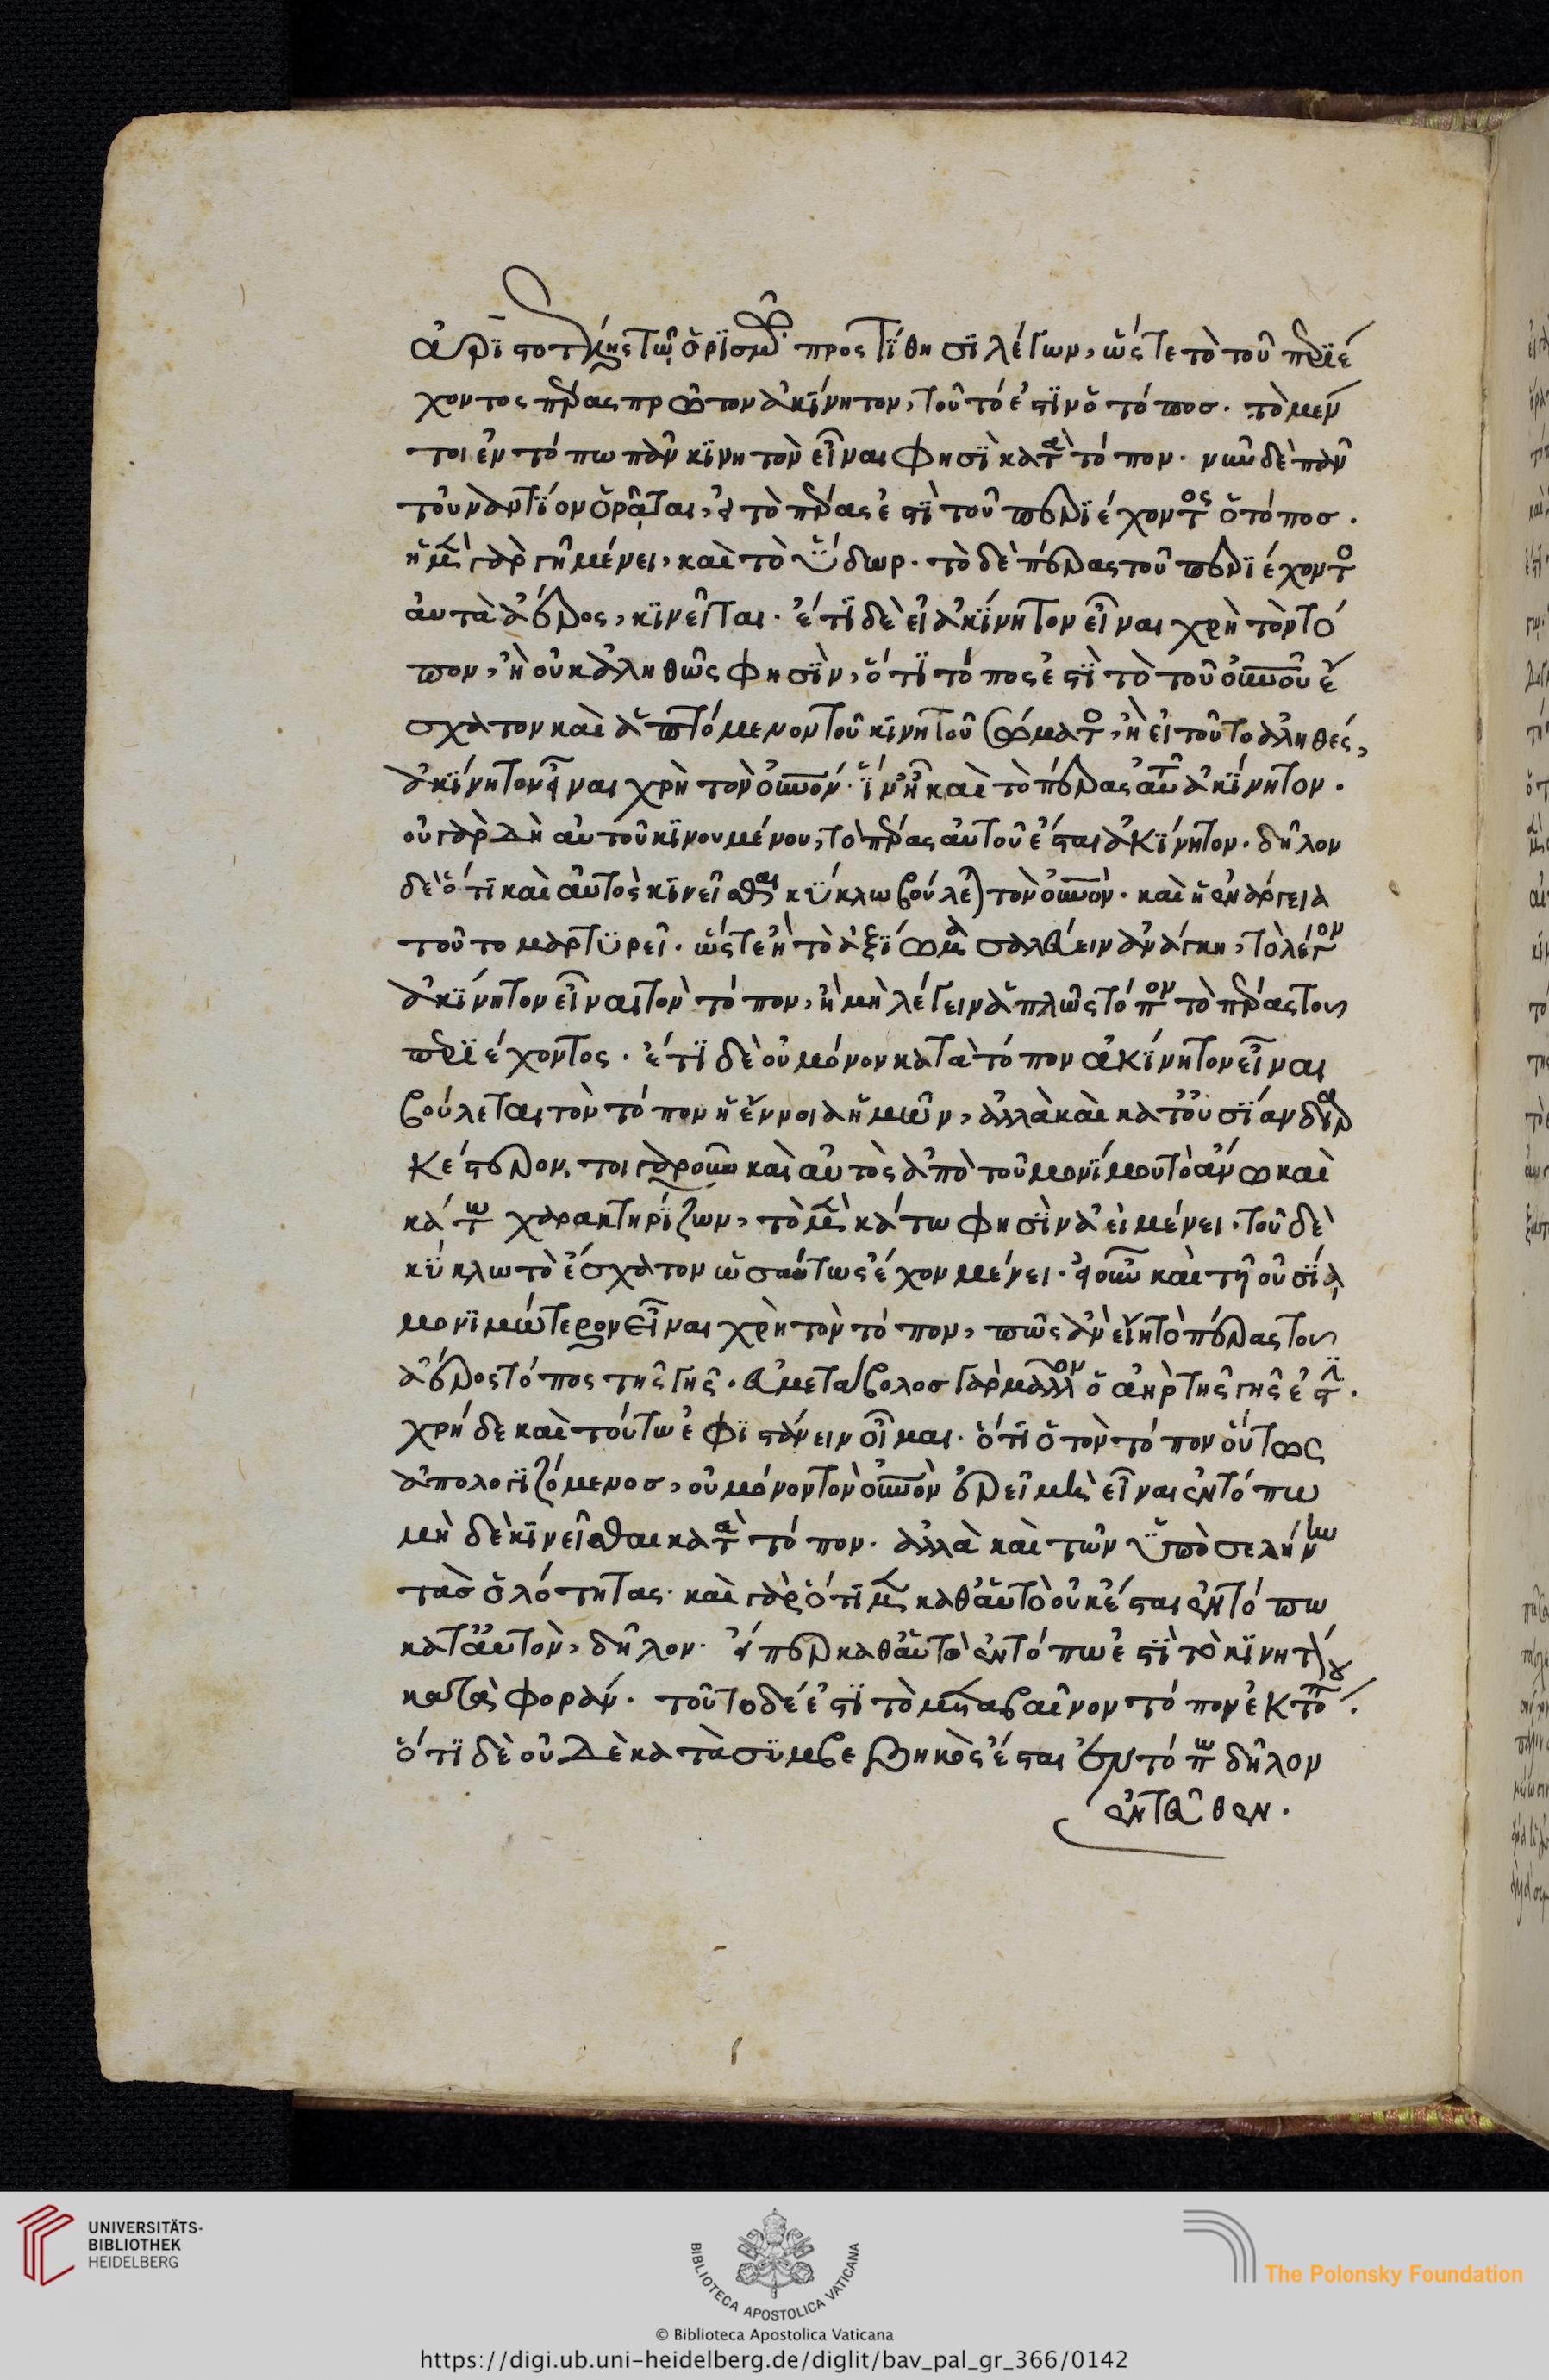 ἀριστοτέλης τῷ ὁρισμῷ προστίθησι λέγων, ὥστε τὸ τοῦ περιέ
χοντος πέρας πρῶτον ἀκίνητον, τοῦτό ἐστιν ὁ τόπος. τὸ μέν
τοι ἐν τόπω πᾶν κινητὸν εἶναι φησὶ κατὰ τόπον. νῦν δὲ πᾶν
τοὐναντίον ὁρᾶται, εἰ τὸ πέρας ἐστὶ τοῦ περιέχοντος ὁ τόπος.
ἡ μὲν γὰρ γῆ μένει, καὶ τὸ ὕδωρ. τὸ δὲ πέρας τοῦ περιέχοντος
αὐτὰ ἀέρος, κινεῖται. ἔτι δὲ εἰ ἀκίνητον εἶναι χρὴ τὸν τό
πον, ἢ οὐκ ἀληθῶς φησὶν, ὅτι τόπος ἐστὶ τὸ τοῦ οὐρανοῦ ἔ
σχατον καὶ ἁπτόμενον τοῦ κινητοῦ σώματος, ἢ εἰ τοῦτο ἀληθές,
ἀκίνητον εἶναι χρὴ τὸν οὐρανόν. ἵν' ᾖ καὶ τὸ πέρας αὐτοῦ ἀκίνητον.
οὐ γὰρ δὴ αὐτοῦ κινουμένου, τὸ πέρας αὐτοῦ ἔσται ἀκίνητον. δῆλον
δὲ ὅτι καὶ αὐτὸς κινεῖσθαι κύκλω βούλεται τὸν οὐρανὸν. καὶ ἡ ἐνάργεια
τοῦτο μαρτυρεῖ. ὥστε ἢ τὸ ἀξίωμα σαλεύειν ἀνάγκη, τὸ λέγον
ἀκίνητον εἶναι τὸν τόπον, ἢ μὴ λέγειν ἁπλῶς τόπον τὸ πέρας τοῦ
περιέχοντος. ἔτι δὲ οὐ μόνον κατὰ τόπον ἀκίνητον εἶναι
βούλεται τὸν τόπον ἡ ἔννοια ἡμῶν, ἀλλὰ καὶ κατ' οὐσίαν διαρ
κέστερον. τοιγαροῦν καὶ αὐτὸς ἀπὸ τοῦ μονίμου τὸ ἄνω καὶ
κάτω χαρακτηρίζων, τὸ μὲν κάτω φησὶν ἀεὶ μένει. τοῦ δὲ
κύκλω τὸ ἔσχατον ὡσαύτως ἔχον μένει. εἰ οὖν καὶ τῇ οὐσίᾳ
μονιμώτερον εἶναι χρὴ τὸν τόπον, πῶς ἂν εἴη τὸ πέρας τοῦ
ἀέρος τόπος τῆς γῆς. εὐμετάβολος γὰρ μᾶλλον ὁ ἀὴρ τῆς γῆς ἐστίν.
χρή δε καὶ τούτω ἐφιστάνειν οἶμαι. ὅτι ὁ τὸν τόπον οὕτως
ἀπολογιζόμενος, οὐ μόνον τὸν οὐρανὸν ἐρεῖ μὴ εἶναι ἐν τόπω
μὴ δὲ κινεῖσθαι κατὰ τόπον. ἀλλὰ καὶ τῶν ὑπὸ σελήνην
τὰς ὁλότητας. καὶ γὰρ ὅτι μὲν καθ' αὑτὸ οὐκ ἔσται ἐν τόπω
κατ' αὐτὸν, δῆλον. εἴπερ καθ' αὑτὸ ἐν τόπω ἐστὶ τὸ κινητὸν
κατὰ φοράν. τοῦτο δέ ἐστι τὸ μεταβαῖνον τόπον ἐκ τόπου.
ὅτι δὲ οὐδὲ κατὰ συμβεβηκὸς ἔσται ἐν τόπω δῆλον
ἐντεῦθεν.
UNIVERSITÄTS-
BIBLIOTHEK
HEIDELBERG
BIBLIOTECA APOSTOLICA VATICANA
The Polonsky Foundation
© Biblioteca Apostolica Vaticana
https://digi.ub.uni-heidelberg.de/diglit/bav_pal_gr_366/0142